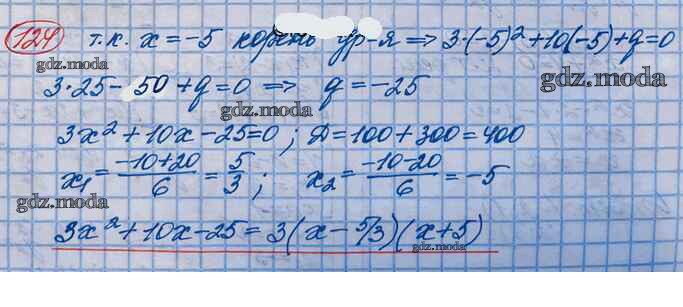 124 т.к. x = -5 корень ур-я => 3·(-5)²+10(-5)+q=0
gdz.moda
gdz.moda
3·25- 50 +q=0 => q=-25
gdz.moda
3x²+10x-25=0; Д=100+300=400
x₁= (-10+20)/6 = 5/3; x₂= (-10-20)/6 = -5
gdz.moda
3x²+10x-25=3(x-5/3)(x+5)
gdz.moda